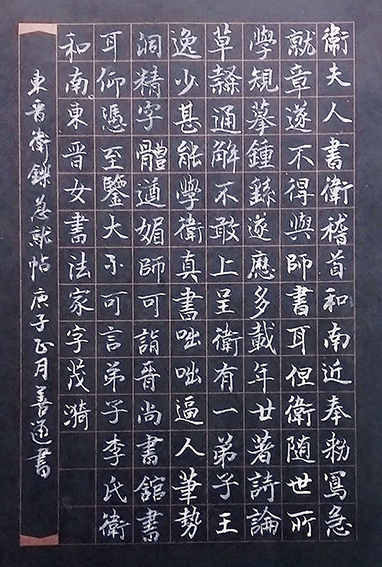 衛夫人書衛稽首和南近奉勑寫急
就章遂不得與師書耳但衛随世所
學規摹鍾繇遂應多載年廿著詩論
草隸通解不敢上呈衛有一弟子王
逸少甚能學衛真書咄咄逼人筆勢
洞精字體遒媚師可詣晉尚書館書
耳仰憑至鑒大不可言弟子李氏衛
和南東晉女書法家字茂漪
東晉衛鑠急就帖 庚子正月善通書